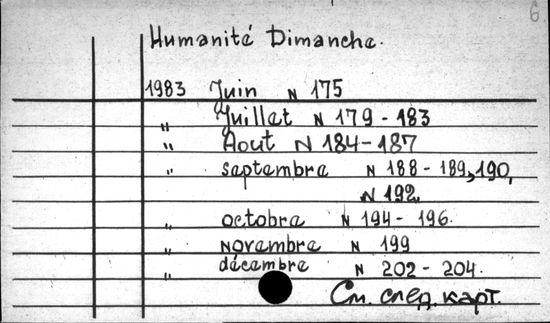 6
Humanité Dimanche.
1983 Juin N 175
„ Juillet N 179 - 183
„ Aout N 184-187
„ septembre N 188 - 189, 190,
N 192.
„ octobre N 194 - 196.
„ novembre N 199
„ décembre N 202 - 204.
См. след. карт.